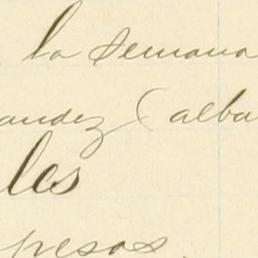 la semana
andez (alba
les
pesos.